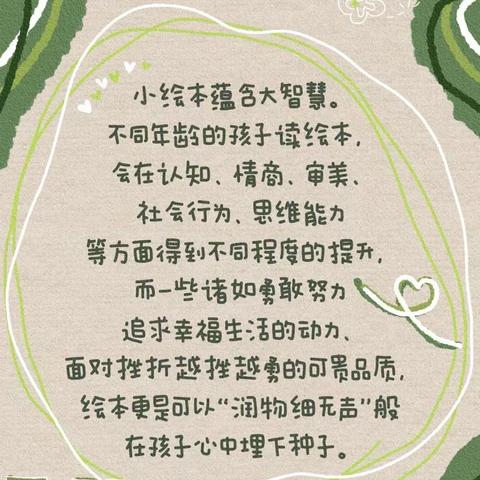 小绘本蕴含大智慧。
不同年龄的孩子读绘本，
会在认知、情商、审美、
社会行为、思维能力
等方面得到不同程度的提升，
而一些诸如勇敢努力
追求幸福生活的动力、
面对挫折越挫越勇的可贵品质，
绘本更是可以“润物细无声”般
在孩子心中埋下种子。